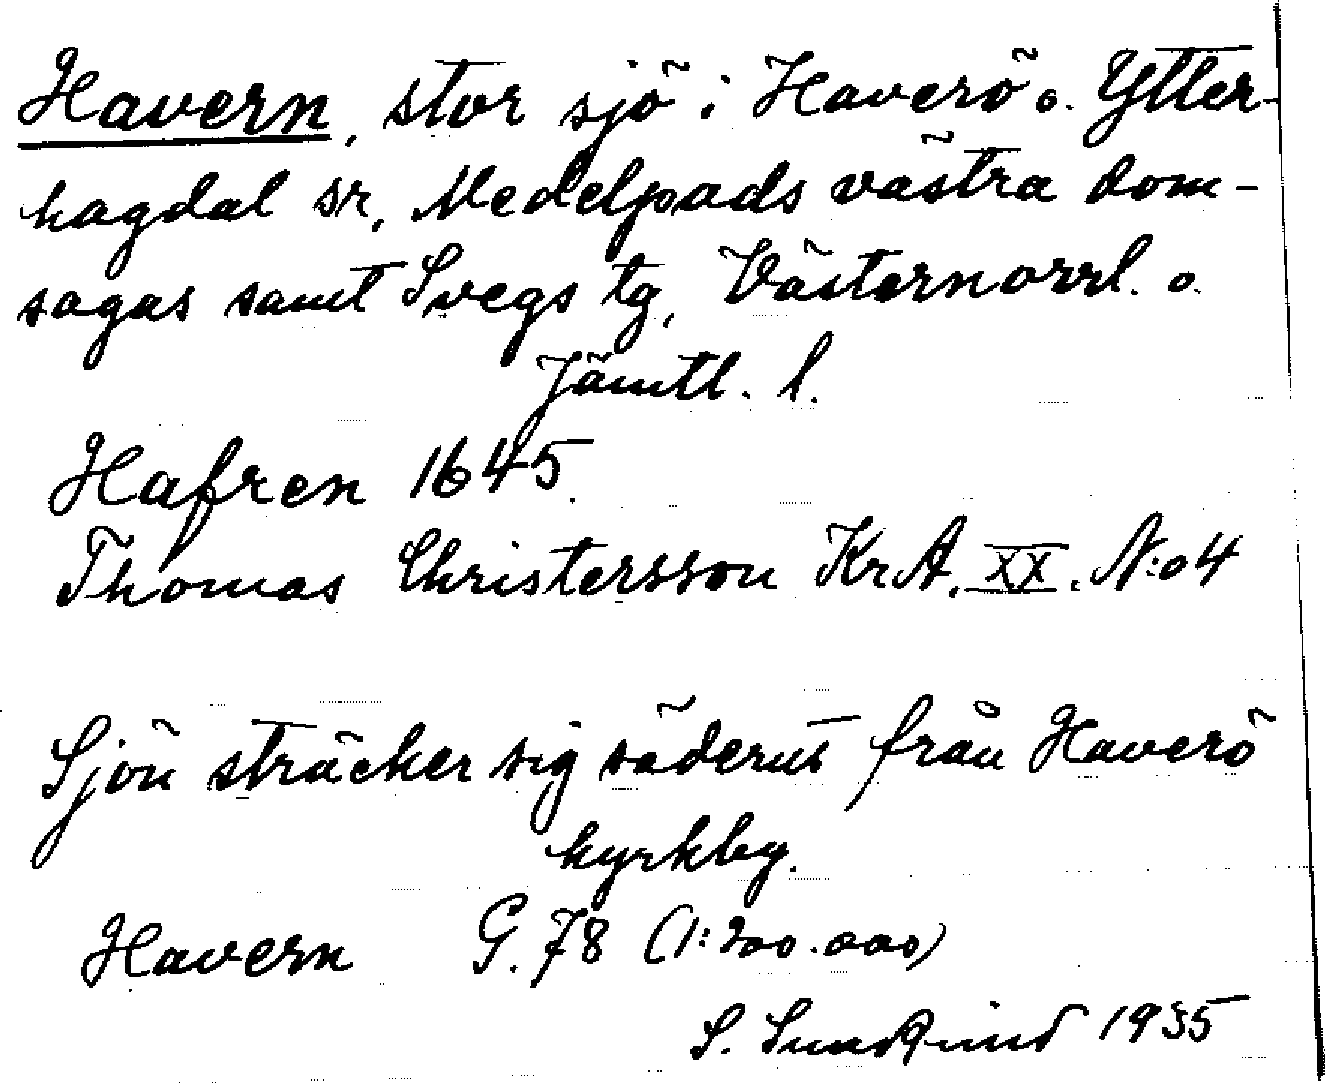 Havern, stor sjö i Haverö o. Ytter-
hogdal sr, Medelpads västra dom-
sagas samt Svegs tg, Västernorrl. o.
Jämtl. l.
Hafren 1645.
Thomas Christersson KrA. XX. N:o 4
Sjön sträcker sig söderut från Haverö
kyrkby.
Havern G. 78 (1:200.000)
S. Sundqvist 1935